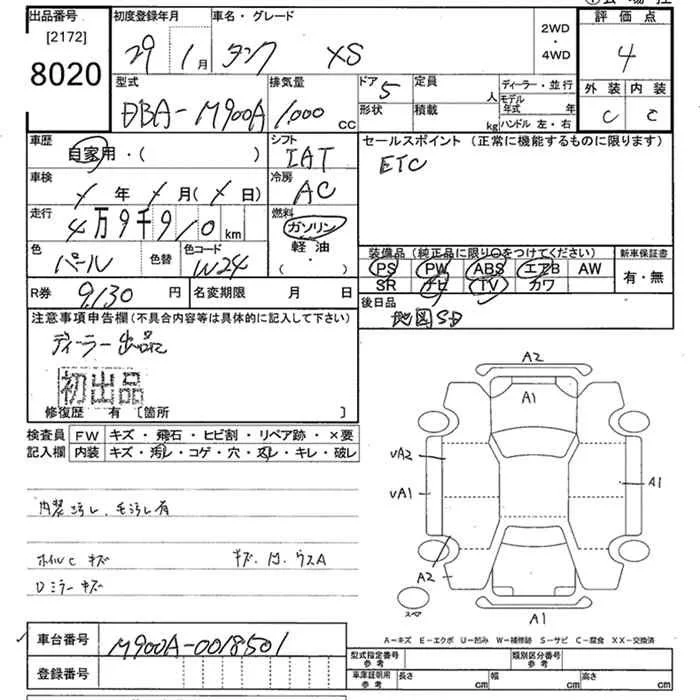 出品番号 初度登録年月 車名・グレード 2WD・4WD 評価点
[2172]
8020 29 1月 タンク XS 4
型式 排気量 ドア 5 定員 人 ディーラー・並行 外装 内装
DBA-M900A 1,000 cc 形状 積載 kg モデル年式 年 ハンドル 左・右 C C
車歴 自家用・( ) シフト IAT セールスポイント (正常に機能するものに限ります)
ETC
車検 年 月( 日) 冷房 AC
走行 4万9千910 km 燃料 ガソリン 軽油 ( ・ )
色 パール 色替 色コード W24
装備品 (純正品に限り○をつけてください) 新車保証書
PS PW ABS エアB AW 有・無
SR ナビ TV カワ
R券 9,130円 名変期限 月 日 後日品
地図SD
注意事項申告欄(不具合内容等は具体的に記入して下さい)
ディーラー出品
初出品
修復歴 有 [箇所 ]
検査員 FW キズ・飛石・ヒビ割・リペア跡・×要
記入欄 内装 キズ・汚レ・コゲ・穴・スレ・キレ・破レ
内装汚レ、毛汚レ有
ホイルC キズ キズ・凹・ウスA
Dミラーキズ
A2
A1
υA2
υA1
A1
A2
スペア
A1
A-キズ E-エクボ U-凹み W-補修跡 S-サビ C-腐食 XX-交換済
車台番号 M900A-0018501
登録番号
型式指定番号 参考 類別区分番号 参考
車庫証明用 参考 長さ cm 幅 cm 高さ cm